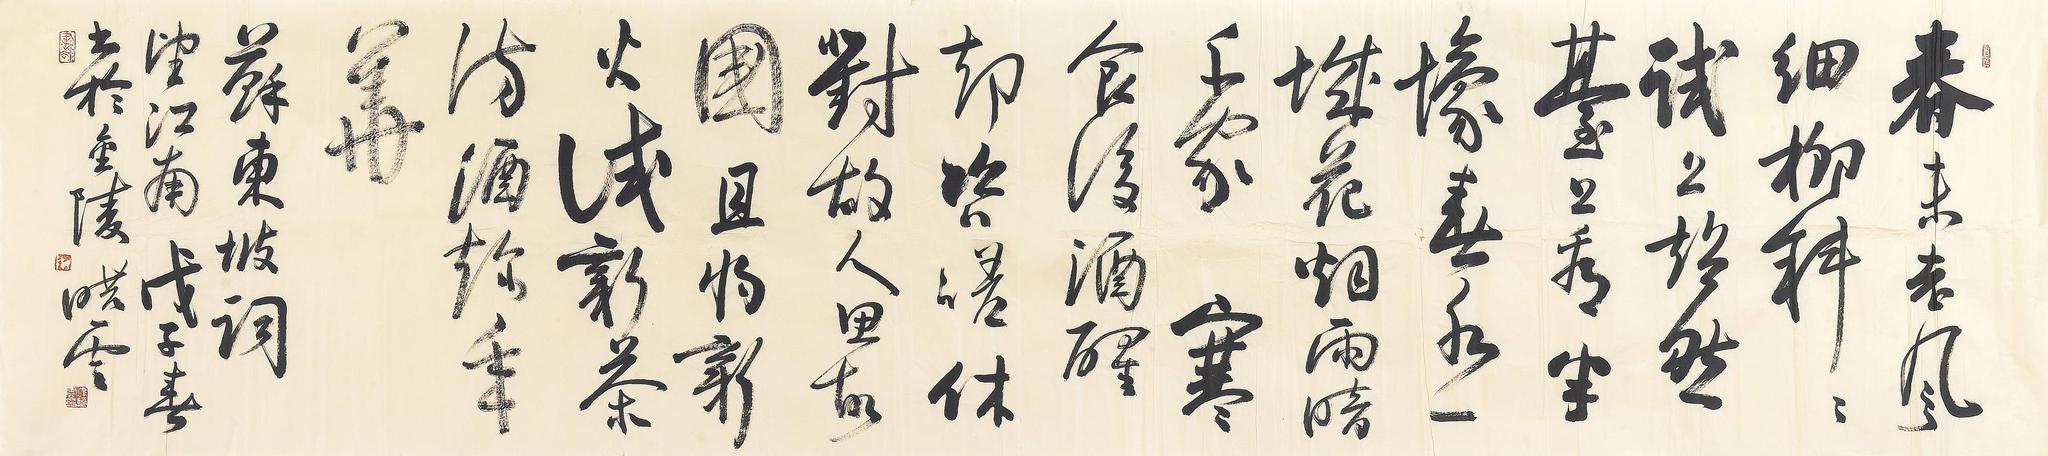 春未老风
细柳斜〻
试上超然
臺上看半
壕春水一
城花烟雨暗
千家寒
食後酒醒
却咨嗟休
對故人思故
國且将新
火试新茶
诗酒趁年
華
蘇東坡词
望江南戊子春
书於金陵